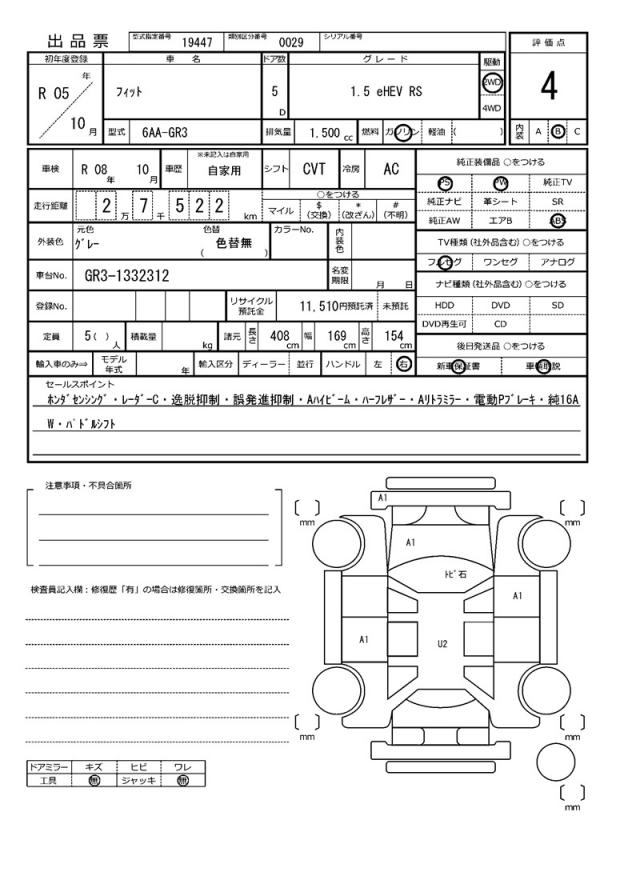 出品票 型式指定番号 19447 類別区分番号 0029 シリアル番号
評価点
4
初年度登録 車名 ドア数 グレード 駆動
R 05 年 10 月
フィット
5 D
1.5 eHEV RS
2WD
4WD
型式 6AA-GR3 排気量 1.500 cc 燃料 ガソリン 軽油 ( )
内装 A B C
車検 R 08 年 10 月 車歴 ※未記入は自家用 自家用 シフト CVT 冷房 AC
走行距離 2 万 7 千 5 2 2 km
○をつける
マイル $(交換) *(改ざん) #(不明)
外装色 元色 グレー 色替 色替無 ( ) カラーNo. 内装色
車台No. GR3-1332312 名変期限 月 日
登録No. リサイクル預託金 11,510円預託済 未預託
定員 5( ) 人 積載量 kg 諸元 長さ 408 cm 幅 169 cm 高さ 154 cm
輸入車のみ⇒ モデル年式 年 輸入区分 ディーラー 並行 ハンドル 左 右
純正装備品 ○をつける
PS PW 純正TV
純正ナビ 革シート SR
純正AW エアB ABS
TV種類 (社外品含む) ○をつける
フルセグ ワンセグ アナログ
ナビ種類 (社外品含む) ○をつける
HDD DVD SD
DVD再生可 CD
後日発送品 ○をつける
新車保証書 車輌取説
セールスポイント
ホンダセンシング・レーダーC・逸脱抑制・誤発進抑制・Aハイビーム・ハーフレザー・Aリトラミラー・電動Pブレーキ・純16A
W・パドルシフト
注意事項・不具合箇所
検査員記入欄:修復歴「有」の場合は修復箇所・交換箇所を記入
ドアミラー キズ ヒビ ワレ
工具 無 ジャッキ 無
A1
mm
mm
A1
トビ石
A1
A1
U2
mm
mm
mm